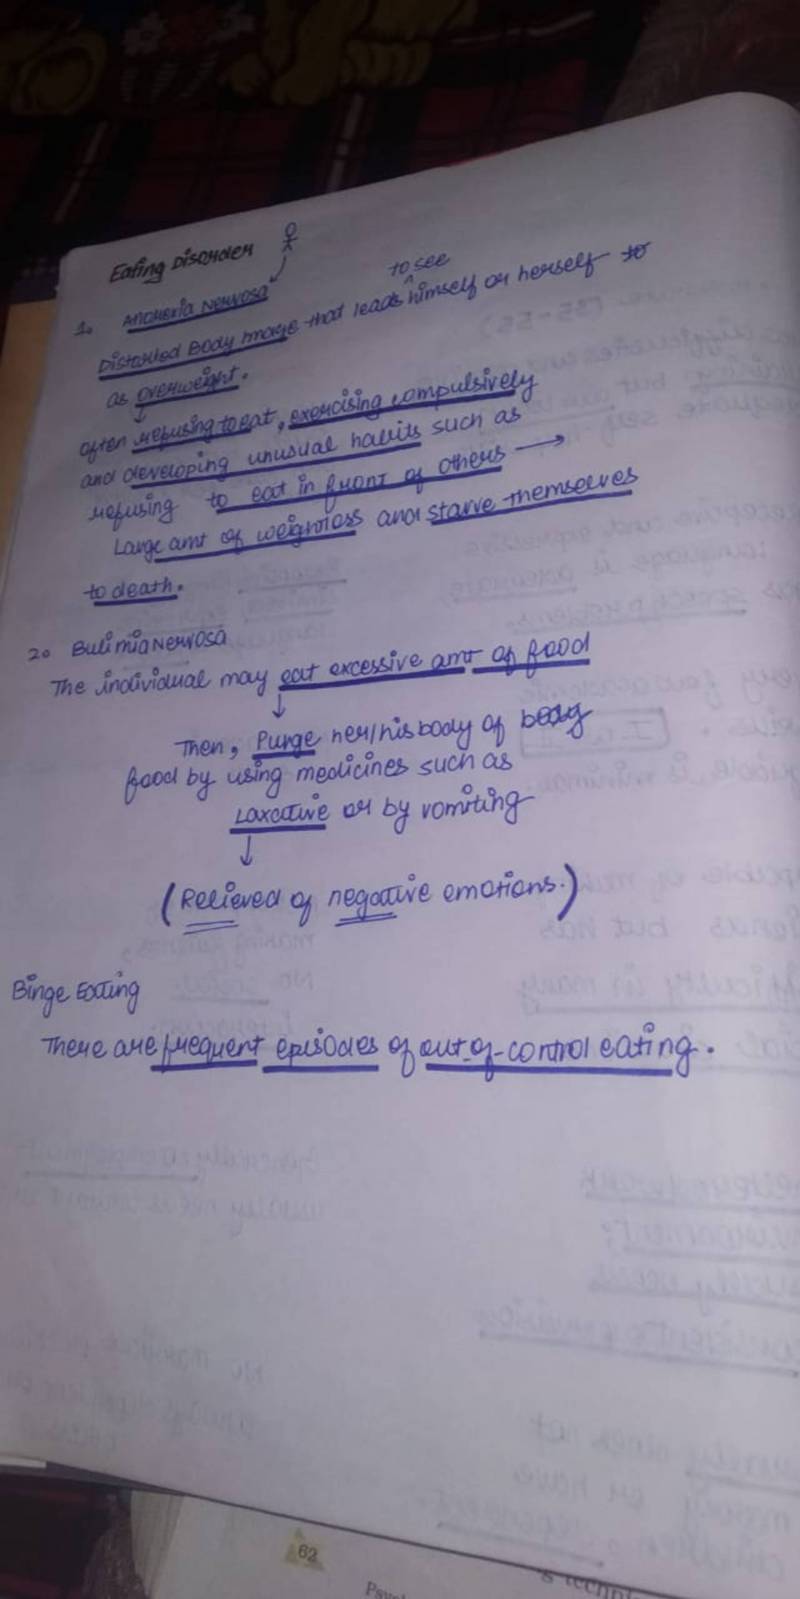 Eating Disorder
1. Anorexia Nervosa
to see
Distorted Body Image that leads himself or herself to
as overweight.
often refusing to eat, exercising compulsively
and developing unusual habits such as
refusing to eat in front of others →
Large amt of weightloss and starve themselves
to death.
2. Bulimia Nervosa
The individual may eat excessive amt of food
↓
Then, Purge her/his body of
food by using medicines such as
Laxative or by vomiting
↓
(Relieved of negative emotions.)
Binge Eating
There are frequent episodes of out-of-control eating.
62